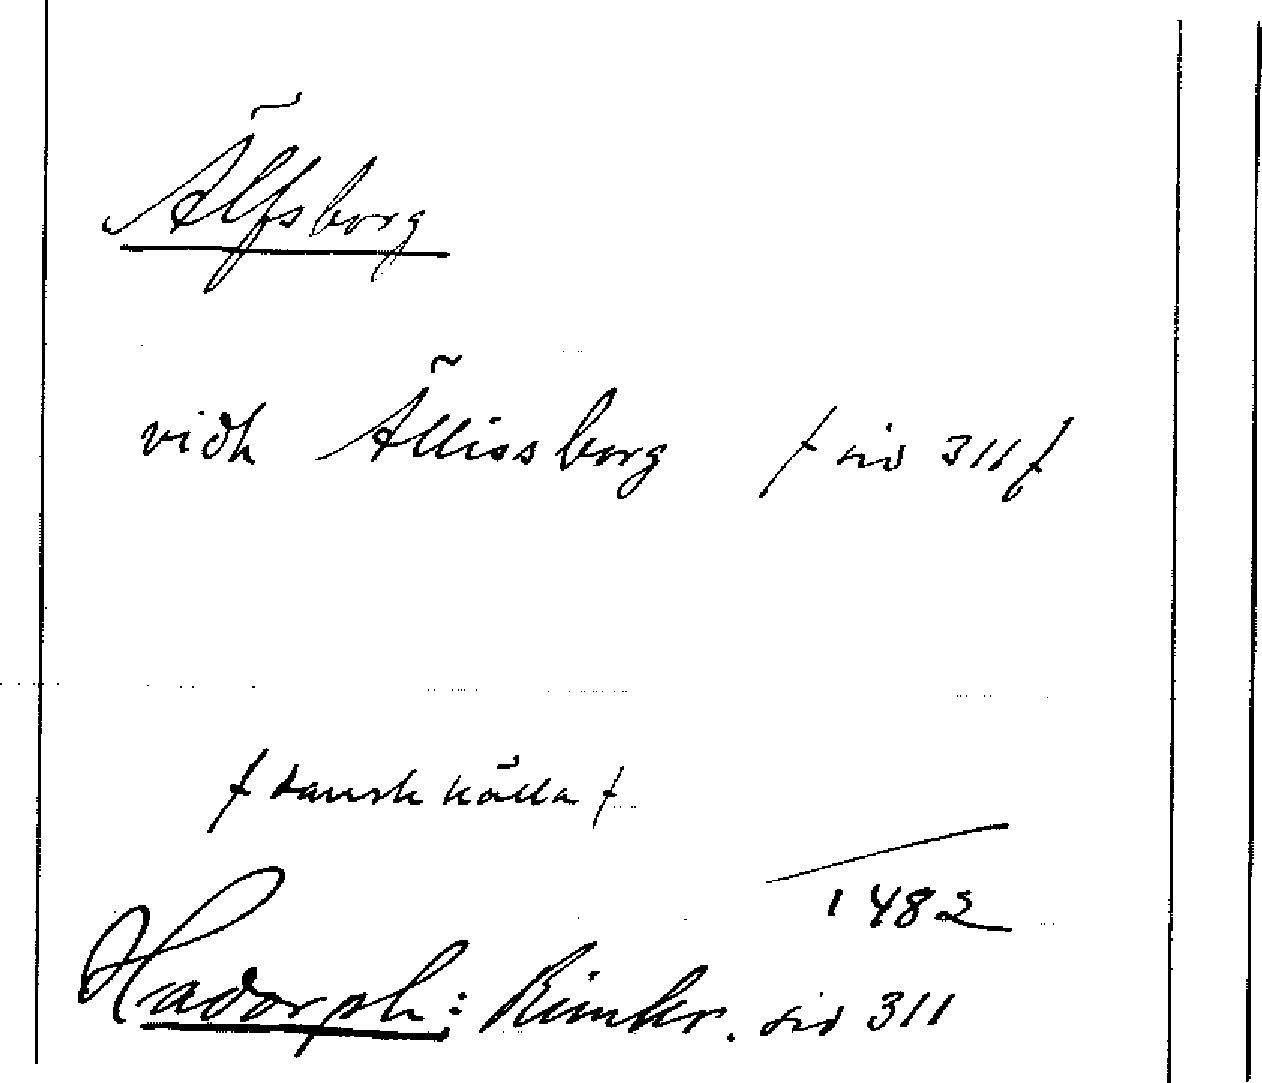 Älfsborg
vidh Ällissborg / sid 311 /
/ dansk källa /
1482
Hadorph: Rimkr. sid 311